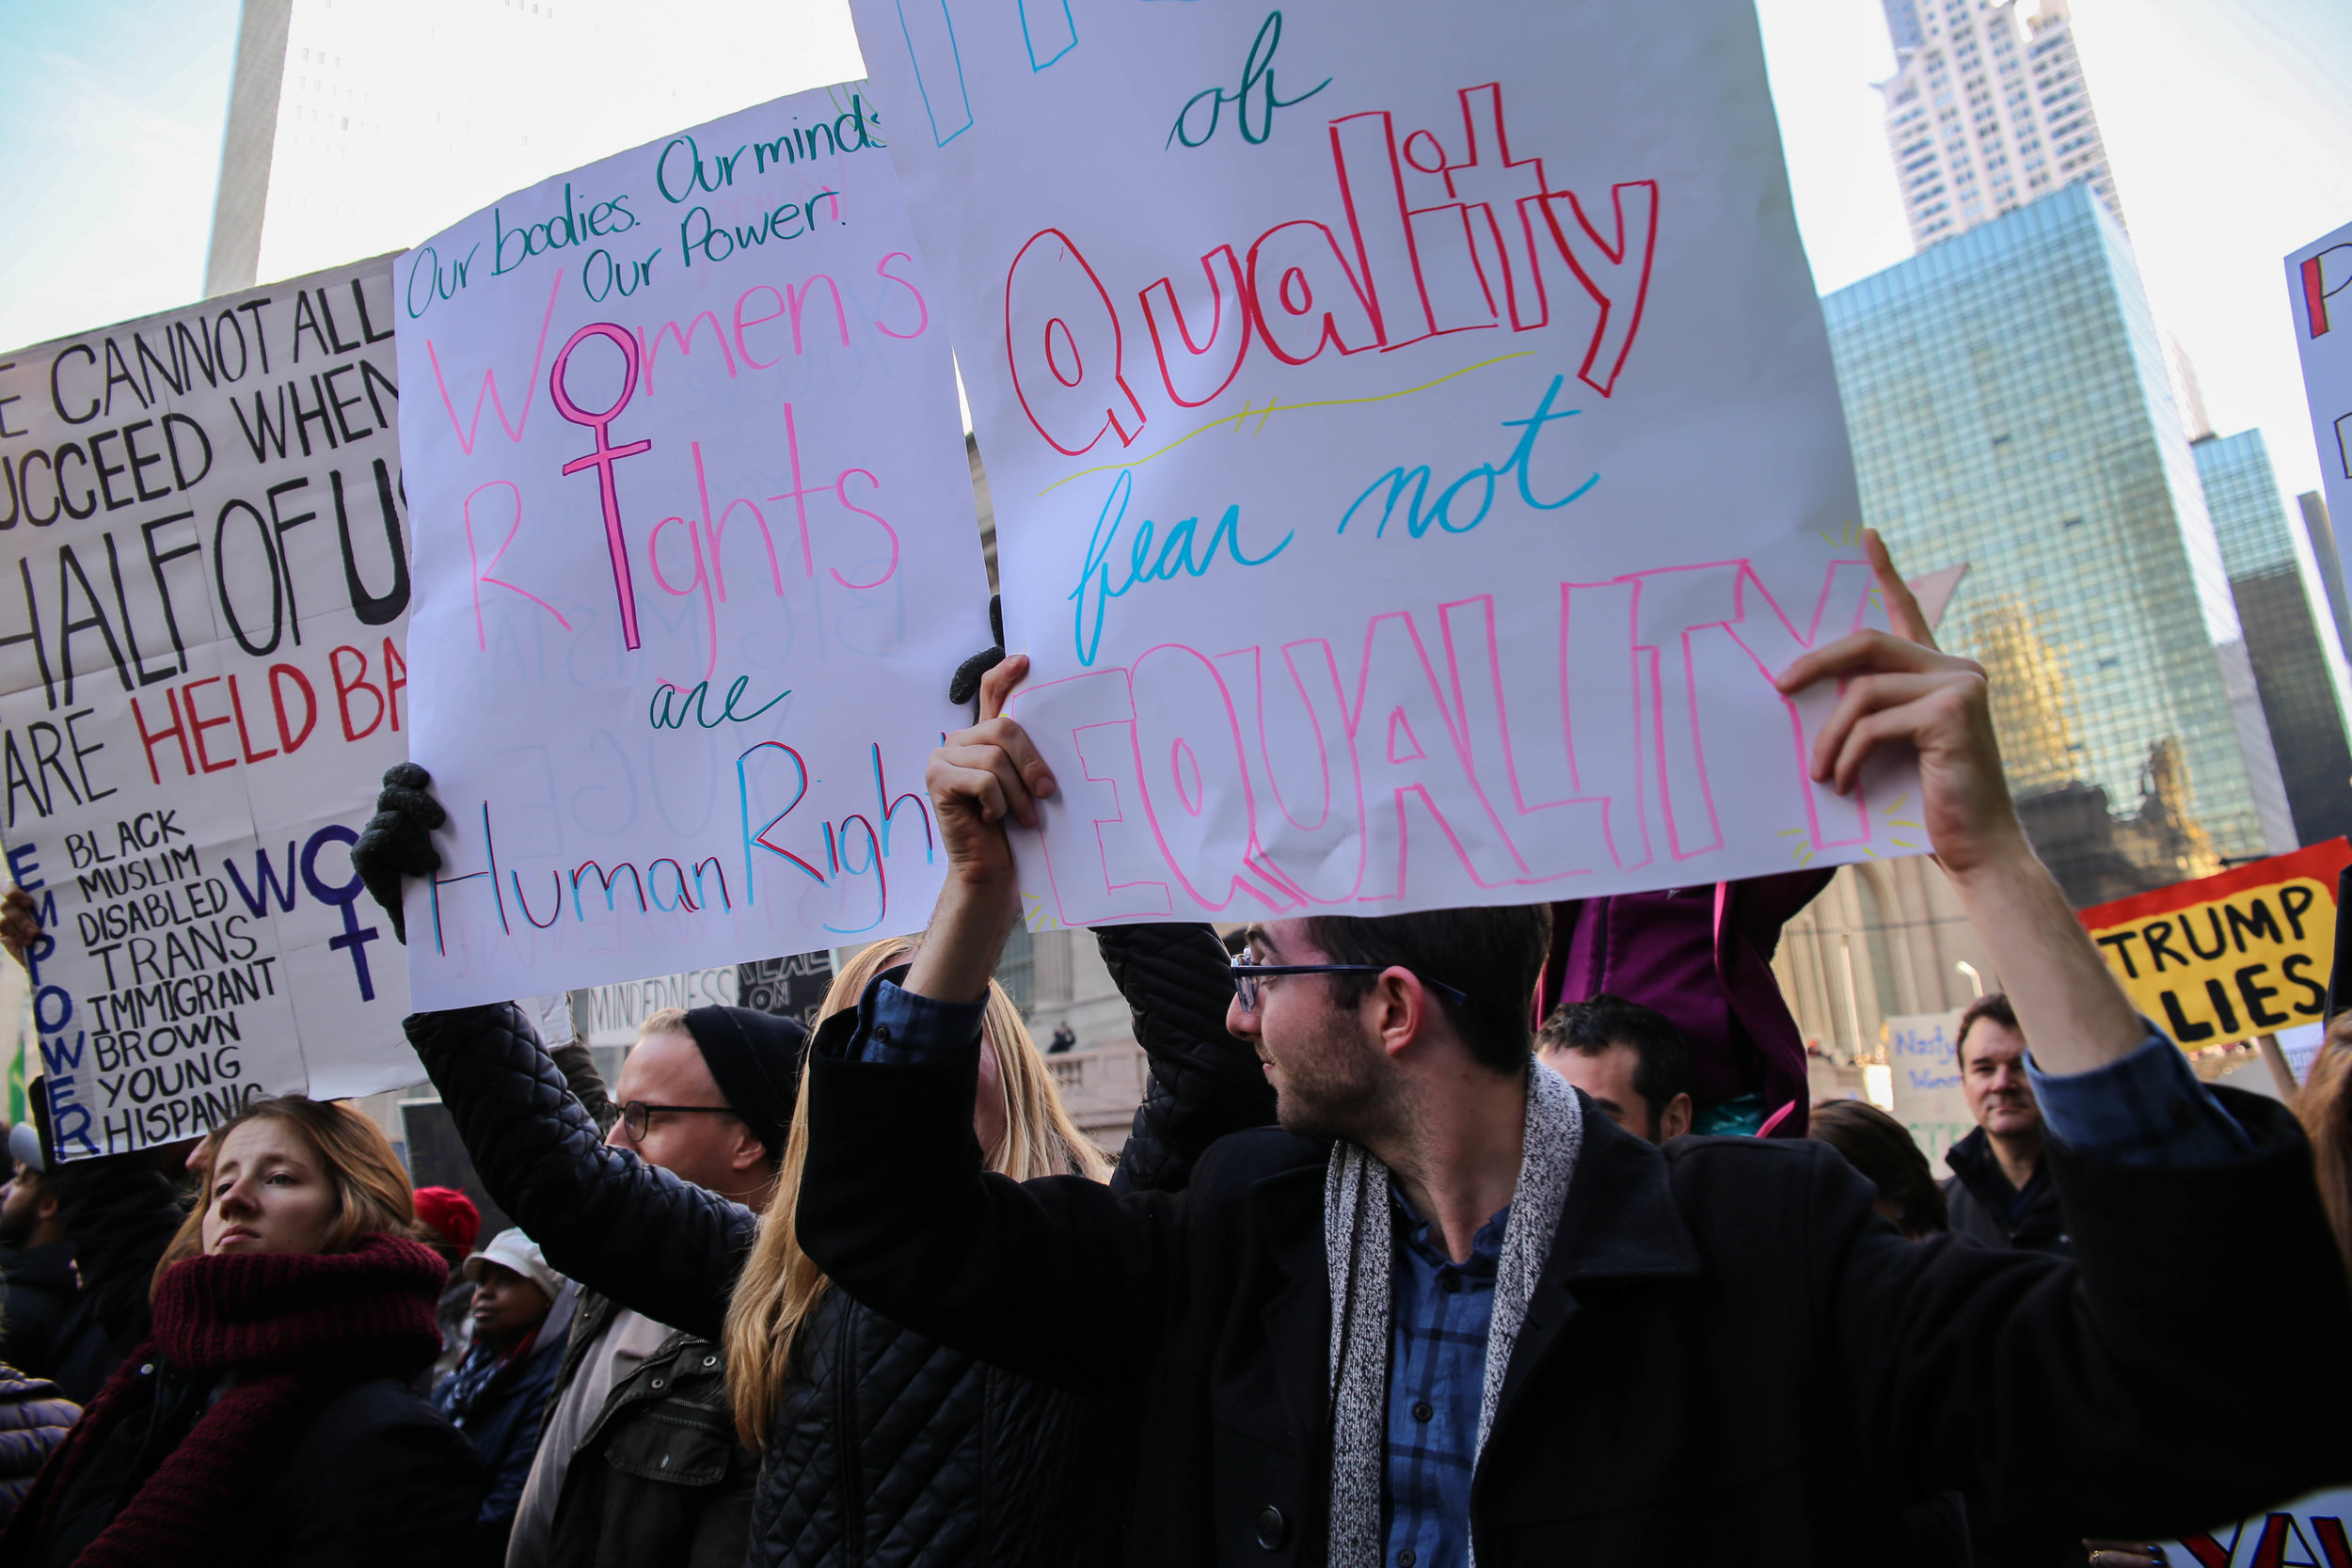 CANNOT ALL
WHEN
HALF OF
ARE HELD
EMPOWER
BLACK
MUSLIM
DISABLED
TRANS
IMMIGRANT
BROWN
YOUNG
HISPANIC
WO
Our bodies. Our minds
Our Power.
Womens
Rights
are
Human
of
Quality
fear not
EQUALITY
MINDEDNESS
ON
TRUMP
LIES
Nasty